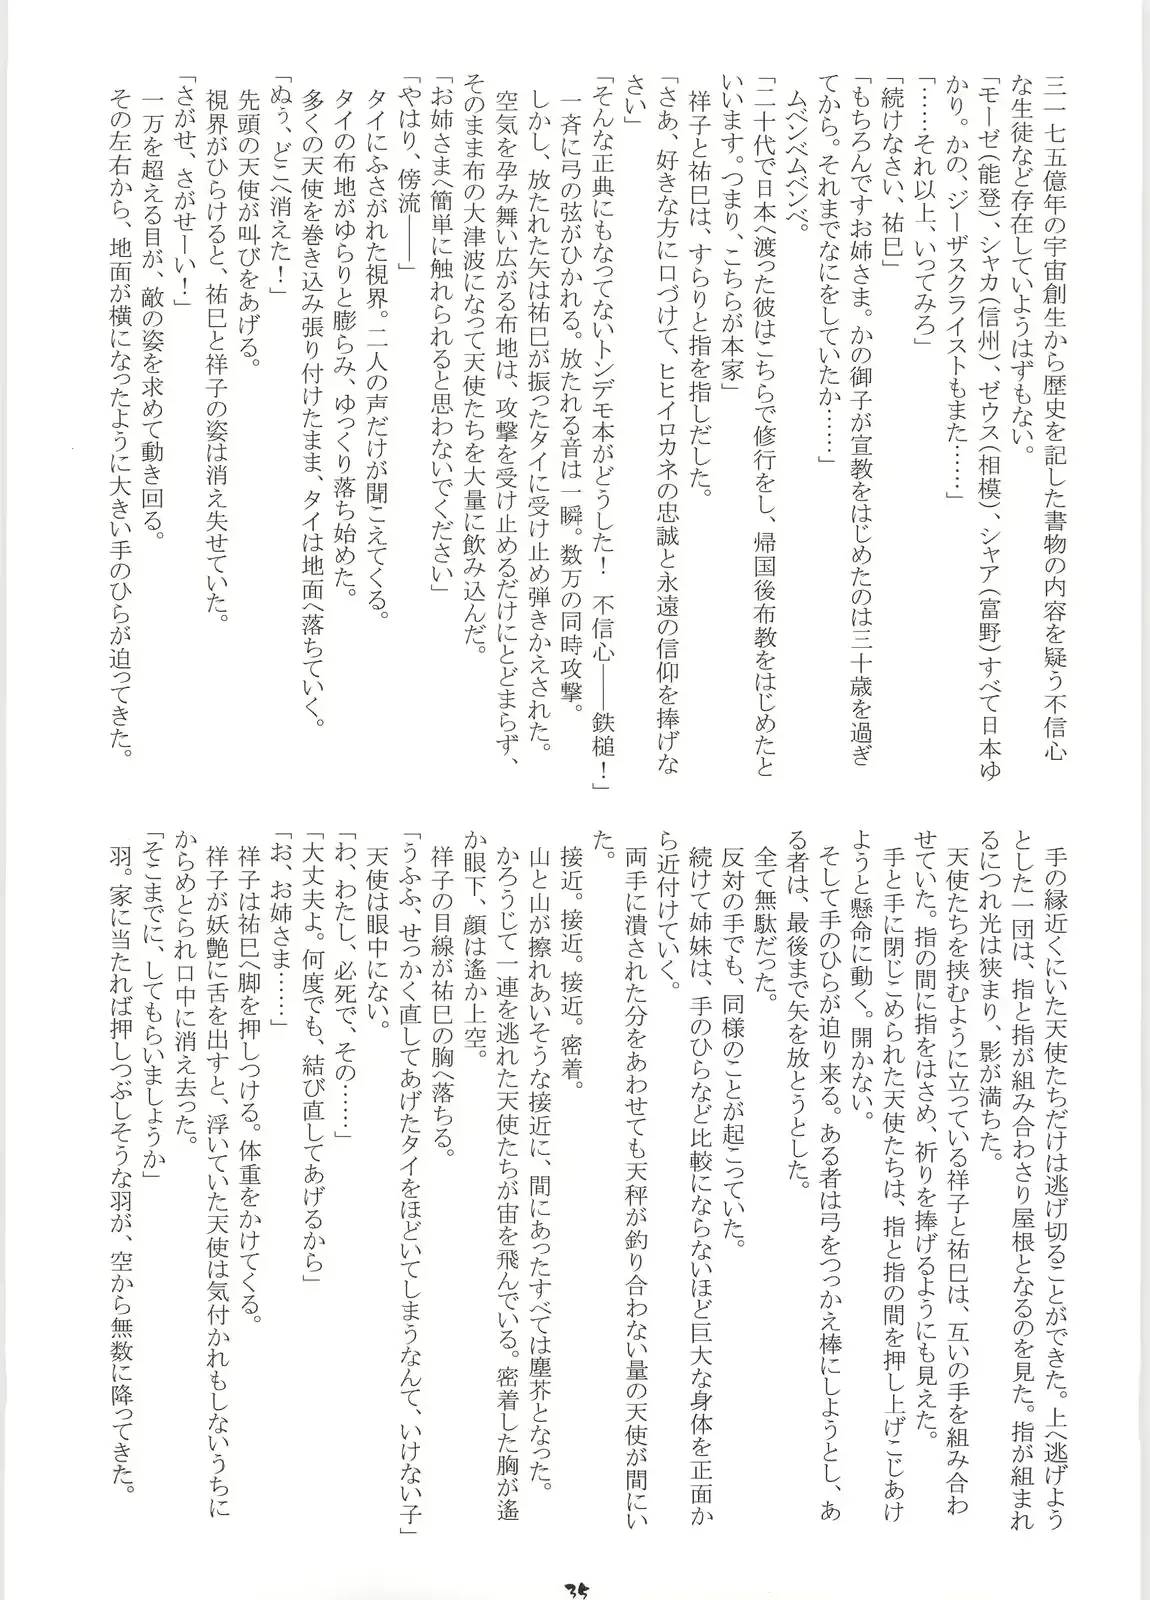 三一七五億年の宇宙創生から歴史を記した書物の内容を疑う不信心
な生徒など存在していようはずもない。
「モーゼ（能登）、シャカ（信州）、ゼウス（相模）、シャア（富野）すべて日本ゆ
かり。かの、ジーザスクライストもまた……」
「……それ以上、いってみろ」
「続けなさい、祐巳」
「もちろんですお姉さま。かの御子が宣教をはじめたのは三十歳を過ぎ
てから。それまでなにをしていたか……」
ムベンベムベンベ。
「二十代で日本へ渡った彼はこちらで修行をし、帰国後布教をはじめたと
いいます。つまり、こちらが本家」
祥子と祐巳は、すらりと指を指しだした。
「さあ、好きな方に口づけて、ヒヒイロカネの忠誠と永遠の信仰を捧げな
さい」
「そんな正典にもなってないトンデモ本がどうした！　不信心――鉄槌！」
一斉に弓の弦がひかれる。放たれる音は一瞬。数万の同時攻撃。
しかし、放たれた矢は祐巳が振ったタイに受け止め弾きかえされた。
空気を孕み舞い広がる布地は、攻撃を受け止めるだけにとどまらず、
そのまま布の大津波になって天使たちを大量に飲み込んだ。
「お姉さまへ簡単に触れられると思わないでください」
「やはり、傍流――」
タイにふさがれた視界。二人の声だけが聞こえてくる。
タイの布地がゆらりと膨らみ、ゆっくり落ち始めた。
多くの天使を巻き込み張り付けたまま、タイは地面へ落ちていく。
「ぬぅ、どこへ消えた！」
先頭の天使が叫びをあげる。
視界がひらけると、祐巳と祥子の姿は消え失せていた。
「さがせ、さがせーい！」
一万を超える目が、敵の姿を求めて動き回る。
その左右から、地面が横になったように大きい手のひらが迫ってきた。
手の縁近くにいた天使たちだけは逃げ切ることができた。上へ逃げよう
とした一団は、指と指が組み合わさり屋根となるのを見た。指が組まれ
るにつれ光は狭まり、影が満ちた。
天使たちを挟むように立っている祥子と祐巳は、互いの手を組み合わ
せていた。指の間に指をはさめ、祈りを捧げるようにも見えた。
手と手に閉じこめられた天使たちは、指と指の間を押し上げこじあけ
ようと懸命に動く。開かない。
そして手のひらが迫り来る。ある者は弓をつっかえ棒にしようとし、あ
る者は、最後まで矢を放とうとした。
全て無駄だった。
反対の手でも、同様のことが起こっていた。
続けて姉妹は、手のひらなど比較にならないほど巨大な身体を正面か
ら近付けていく。
両手に潰された分をあわせても天秤が釣り合わない量の天使が間にい
た。
接近。接近。接近。密着。
山と山が擦れあいそうな接近に、間にあったすべては塵芥となった。
かろうじて一連を逃れた天使たちが宙を飛んでいる。密着した胸が遙
か眼下、顔は遙か上空。
祥子の目線が祐巳の胸へ落ちる。
「うふふ、せっかく直してあげたタイをほどいてしまうなんて、いけない子」
天使は眼中にない。
「わ、わたし、必死で、その……」
「大丈夫よ。何度でも、結び直してあげるから」
「お、お姉さま……」
祥子は祐巳へ脚を押しつける。体重をかけてくる。
祥子が妖艶に舌を出すと、浮いていた天使は気付かれもしないうちに
からめとられ口中に消え去った。
「そこまでに、してもらいましょうか」
羽。家に当たれば押しつぶしそうな羽が、空から無数に降ってきた。
35